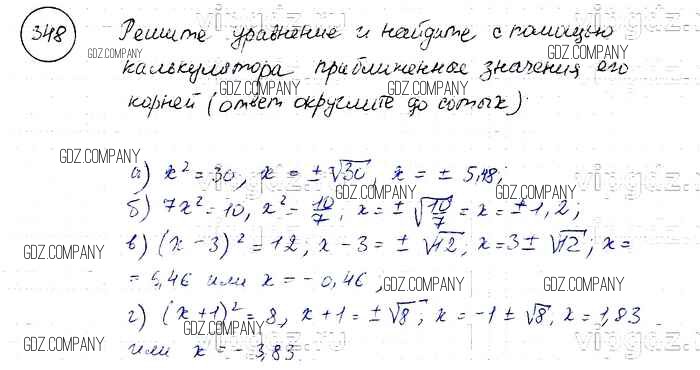 348 Решите уравнение и найдите с помощью
калькулятора приближенное значения его
корней (ответ округлите до сотых).
а) x² = 30, x = ±√30, x = ± 5,48;
б) 7x² = 10, x² = 10/7, x = ± √10/7 = x = ±1,2;
в) (x - 3)² = 12; x - 3 = ± √12; x = 3 ± √12; x =
= 6,46 или x = - 0,46;
г) (x + 1)² = 8, x + 1 = ± √8; x = -1 ± √8, x = 1,83
или x = - 3,83.
GDZ.COMPANY
GDZ.COMPANY
GDZ.COMPANY
GDZ.COMPANY
GDZ.COMPANY
GDZ.COMPANY
GDZ.COMPANY
GDZ.COMPANY
GDZ.COMPANY
GDZ.COMPANY
GDZ.COMPANY
GDZ.COMPANY
GDZ.COMPANY